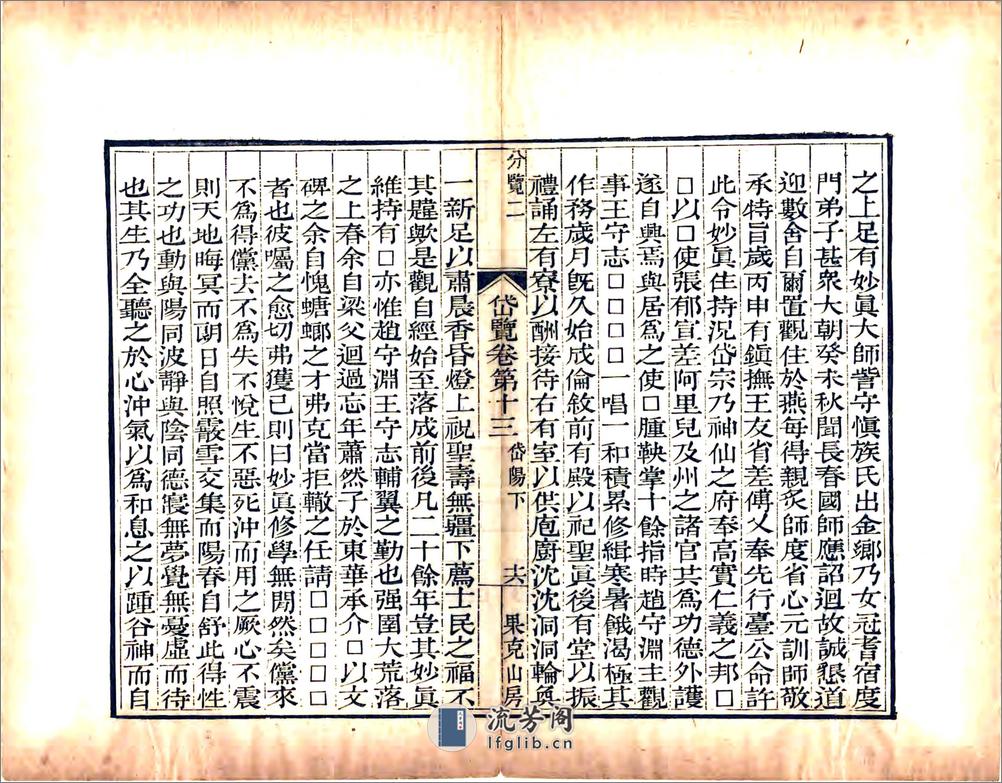 之上足有妙眞大師訾守愼族氏出金鄉乃女冠耆宿度
門弟子甚衆大朝癸未秋聞長春國師應詔迴故誠懇道
迎數舍自爾置觀住於燕每得親炙師度省心元訓師敬
承特旨歲丙申有鎭撫王友省差傅乂奉先行臺公命許
此令妙眞生持況岱宗乃神仙之府奉高實仁義之邦□
□以□使張郁宣差阿里兒及州之諸官其爲功德外護
遂自興焉與居爲之使□腫鞅掌十餘指時趙守淵主觀
事王守志□□□□一唱一和積累修緝寒暑餓渴極其
作務歲月旣久始成倫敘前有殿以祀聖眞後有堂以振
禮誦左有寮以酬接待右有室以供庖廚沈沈洞洞輪奐
分覽二
岱覽卷第十三 岱陽下 十六 果克山房
一新足以肅晨香昏燈上祝聖壽無疆下薦士民之福不
其韙歟是觀自經始至落成前後凡二十餘年豈其妙眞
維持有□亦惟趙守淵王守志輔翼之勤也强圉大荒落
之上春余自梁父迴過忘年蕭然子於東華承介□以文
碑之余自愧螗螂之才弗克當拒轍之任請□□□□□
者也彼囑之愈切弗獲已則曰妙眞修學無閒然矣儻來
不爲得儻去不爲失不悅生不惡死沖而用之厥心不震
則天地晦冥而朗日自照霰雪交集而陽春自舒此得性
之功也動與陽同波靜與陰同德寢無夢覺無憂虛而待
也其生乃全聽之於心沖氣以爲和息之以踵谷神而自
流芳阁
lfglib.cn